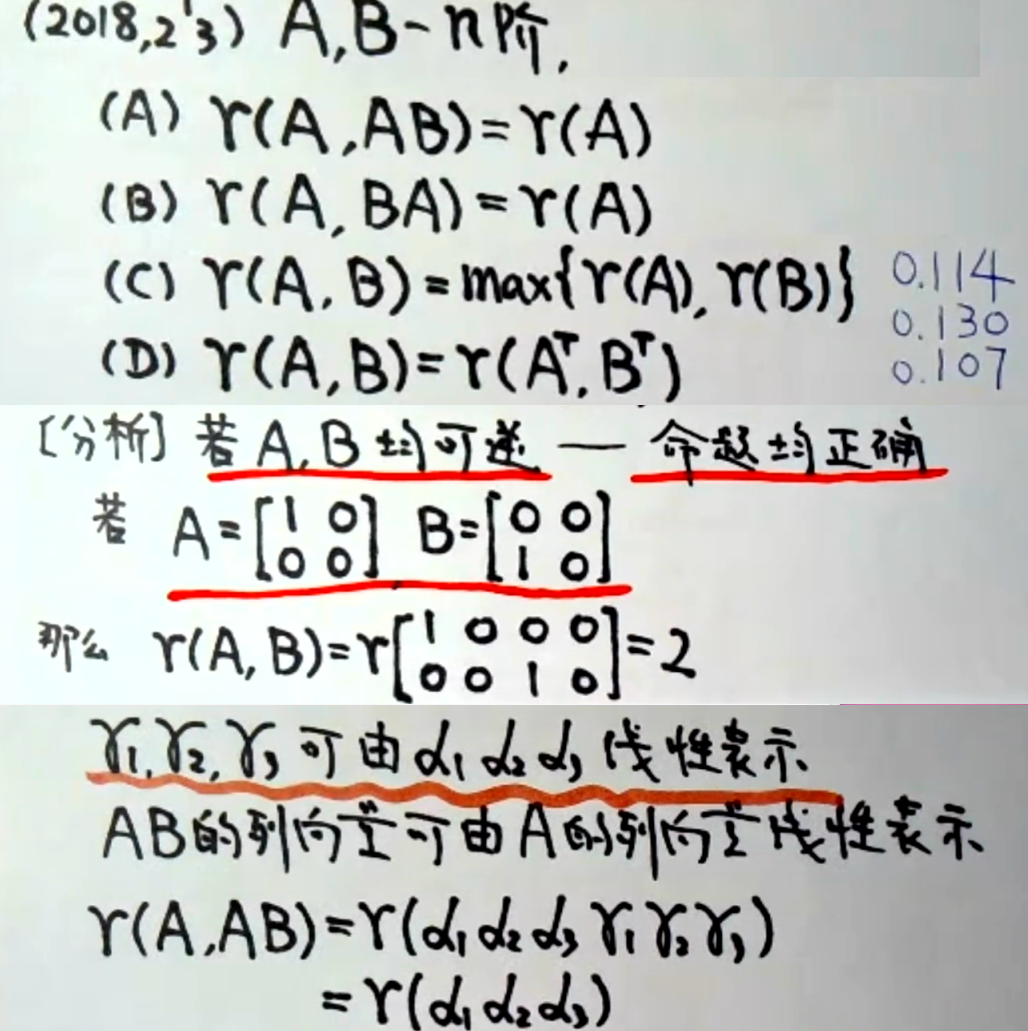 (2018,2'3) A,B-n阶,
(A) r(A,AB)=r(A)
(B) r(A,BA)=r(A)
(C) r(A,B)=max{r(A),r(B)}
0.114
0.130
(D) r(A,B)=r(Aᵀ,Bᵀ)
0.107
[分析] 若A,B均可逆 — 命题均正确
若 A=[1 0 B=[0 0
0 0] 1 0]
那么 r(A,B)=r[1 0 0 0
0 0 1 0]=2
γ₁,γ₂,γ₃可由α₁α₂α₃线性表示
AB的列向量可由A的列向量线性表示
r(A,AB)=r(α₁α₂α₃γ₁γ₂γ₃)
=r(α₁α₂α₃)